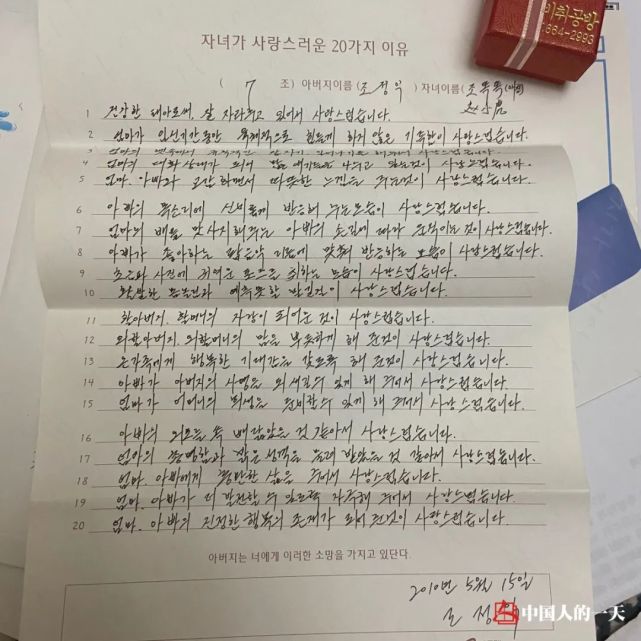 비취공방
664-2993
자녀가 사랑스러운 20가지 이유
( 7 조) 아버지이름(조정익) 자녀이름(조똑똑(태명)
赵小虎
1 건강한 태아로써, 잘 자라주고 있어서 사랑스럽습니다.
2 엄마가 임신기간동안 육체적으로 힘들게 하지 않은 기특함이 사랑스럽습니다.
3 사랑스럽습니다.
4 엄마의 대화상대가 되어 많은 얘기를 나누고 있는것이 사랑스럽습니다.
5 엄마. 아빠와 교감하면서 따뜻한 느낌을 주는것이 사랑스럽습니다.
6 아빠의 목소리에 신비롭게 반응해 주는모습이 사랑스럽습니다.
7 엄마의 배를 맛사지해주는 아빠의 손길에 따라 움직이는것이 사랑스럽습니다.
8 아빠가 좋아하는 팝음악 리듬에 맞춰 반응하는 모습이 사랑스럽습니다.
9 초음파 사진에 귀여운 포즈를 취하는 모습이 사랑스럽습니다.
10 활발한 움직임과 예측못할 발길질이 사랑스럽습니다.
11 할아버지. 할머니의 자랑이 되어준 것이 사랑스럽습니다.
12 외할아버지. 외할머니의 맘을 뿌듯하게 해 준것이 사랑스럽습니다.
13 온가족에게 행복한 기대감을 갖도록 해 준것이 사랑스럽습니다.
14 아빠가 아버지의 사명을 되새길수 있게 해 주어서 사랑스럽습니다.
15 엄마가 어머니의 희생을 준비할수 있게 해 주어서 사랑스럽습니다.
16 아빠의 외모를 쏙 빼닮았을 것 같아서 사랑스럽습니다.
17 엄마의 총명함과 밝은 성격을 물려 받았을 것 같아서 사랑스럽습니다.
18 엄마. 아빠에게 충만한 삶을 주어서 사랑스럽습니다.
19 엄마. 아빠가 더 발전할 수 있도록 자극해 주어서 사랑스럽습니다.
20 엄마. 아빠의 진정한 행복의 존재가 되어 준것이 사랑스럽습니다.
아버지는 너에게 이러한 소망을 가지고 있단다.
2010년 5월 15일
조 정
中国人的一天